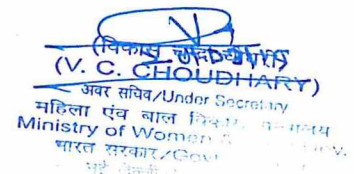 (विकास चौधरी)
(V. C. CHOUDHARY)
अवर सचिव/Under Secretary
महिला एंव बाल विकास मंत्रालय
Ministry of Women &
भारत सरकार/Govt
नई दिल्ली